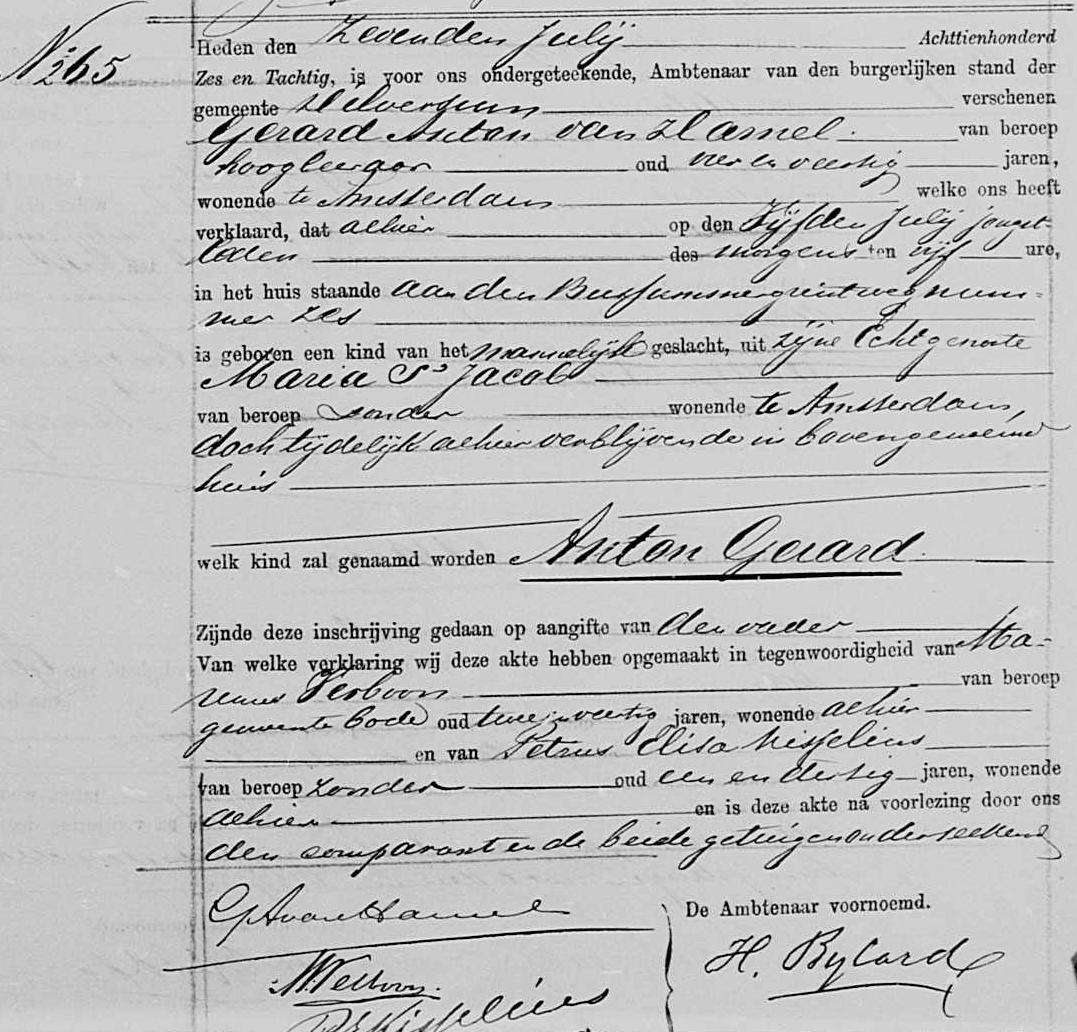 No 265
Heden den Zevenden Julij Achttienhonderd
Zes en Tachtig, is voor ons ondergeteekende, Ambtenaar van den burgerlijken stand der
gemeente Hilversum verschenen
Gerard Anton van Hamel. van beroep
hoogleeraar oud vier en veertig jaren,
wonende te Amsterdam welke ons heeft
verklaard, dat alhier op den Vijfden Julij jongst-
leden des morgens ten vijf ure,
in het huis staande aan den Bussummergrintweg num-
mer zes
is geboren een kind van het mannelijk geslacht, uit zijne Echtgenoote
Maria St Jacob
van beroep zonder wonende te Amsterdam,
doch tijdelijk alhier verblijvende in bovengemeld
huis
welk kind zal genaamd worden Anton Gerard
Zijnde deze inschrijving gedaan op aangifte van den vader
Van welke verklaring wij deze akte hebben opgemaakt in tegenwoordigheid van Ma-
rinus Verboon van beroep
gemeente bode oud twee en veertig jaren, wonende alhier
en van Petrus Elisa Kisselius
van beroep zonder oud een en dertig jaren, wonende
alhier en is deze akte na voorlezing door ons
den comparant en de beide getuigen onderteekend
GAvanHamel De Ambtenaar voornoemd.
M. Verboon. H. Bylard
P E Kisselius